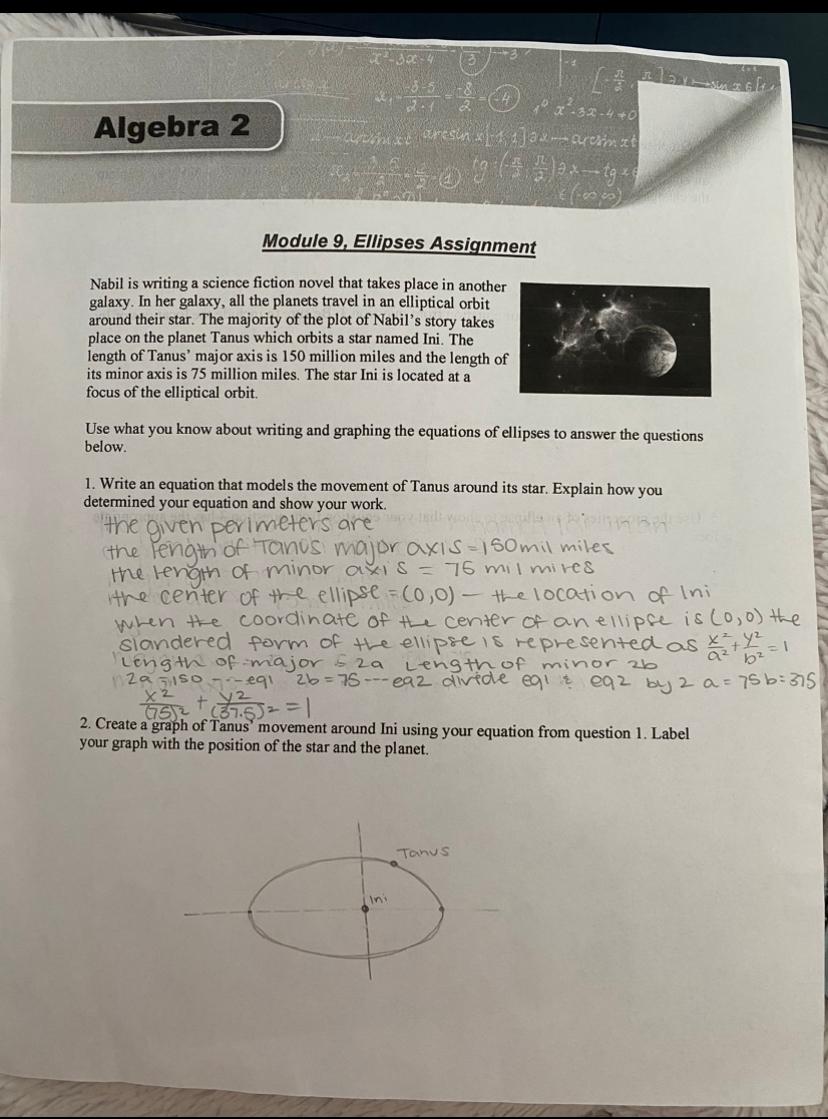 Algebra 2
Module 9, Ellipses Assignment
Nabil is writing a science fiction novel that takes place in another
galaxy. In her galaxy, all the planets travel in an elliptical orbit
around their star. The majority of the plot of Nabil's story takes
place on the planet Tanus which orbits a star named Ini. The
length of Tanus' major axis is 150 million miles and the length of
its minor axis is 75 million miles. The star Ini is located at a
focus of the elliptical orbit.
Use what you know about writing and graphing the equations of ellipses to answer the questions
below.
1. Write an equation that models the movement of Tanus around its star. Explain how you
determined your equation and show your work.
the given perimeters are
the length of Tanus major axis = 150 mil miles
the length of minor axis = 75 mil miles
the center of the ellipse = (0,0) — the location of Ini
when the coordinate of the center of an ellipse is (0,0) the
standered form of the ellipse is represented as x²/a² + y²/b² = 1
Length of major = 2a Length of minor 2b
2a = 150 --- eq1 2b = 75 --- eq2 divide eq1 & eq2 by 2 a = 75 b = 375
x²/(75)² + y²/(37.5)² = 1
2. Create a graph of Tanus' movement around Ini using your equation from question 1. Label
your graph with the position of the star and the planet.
Tanus
Ini